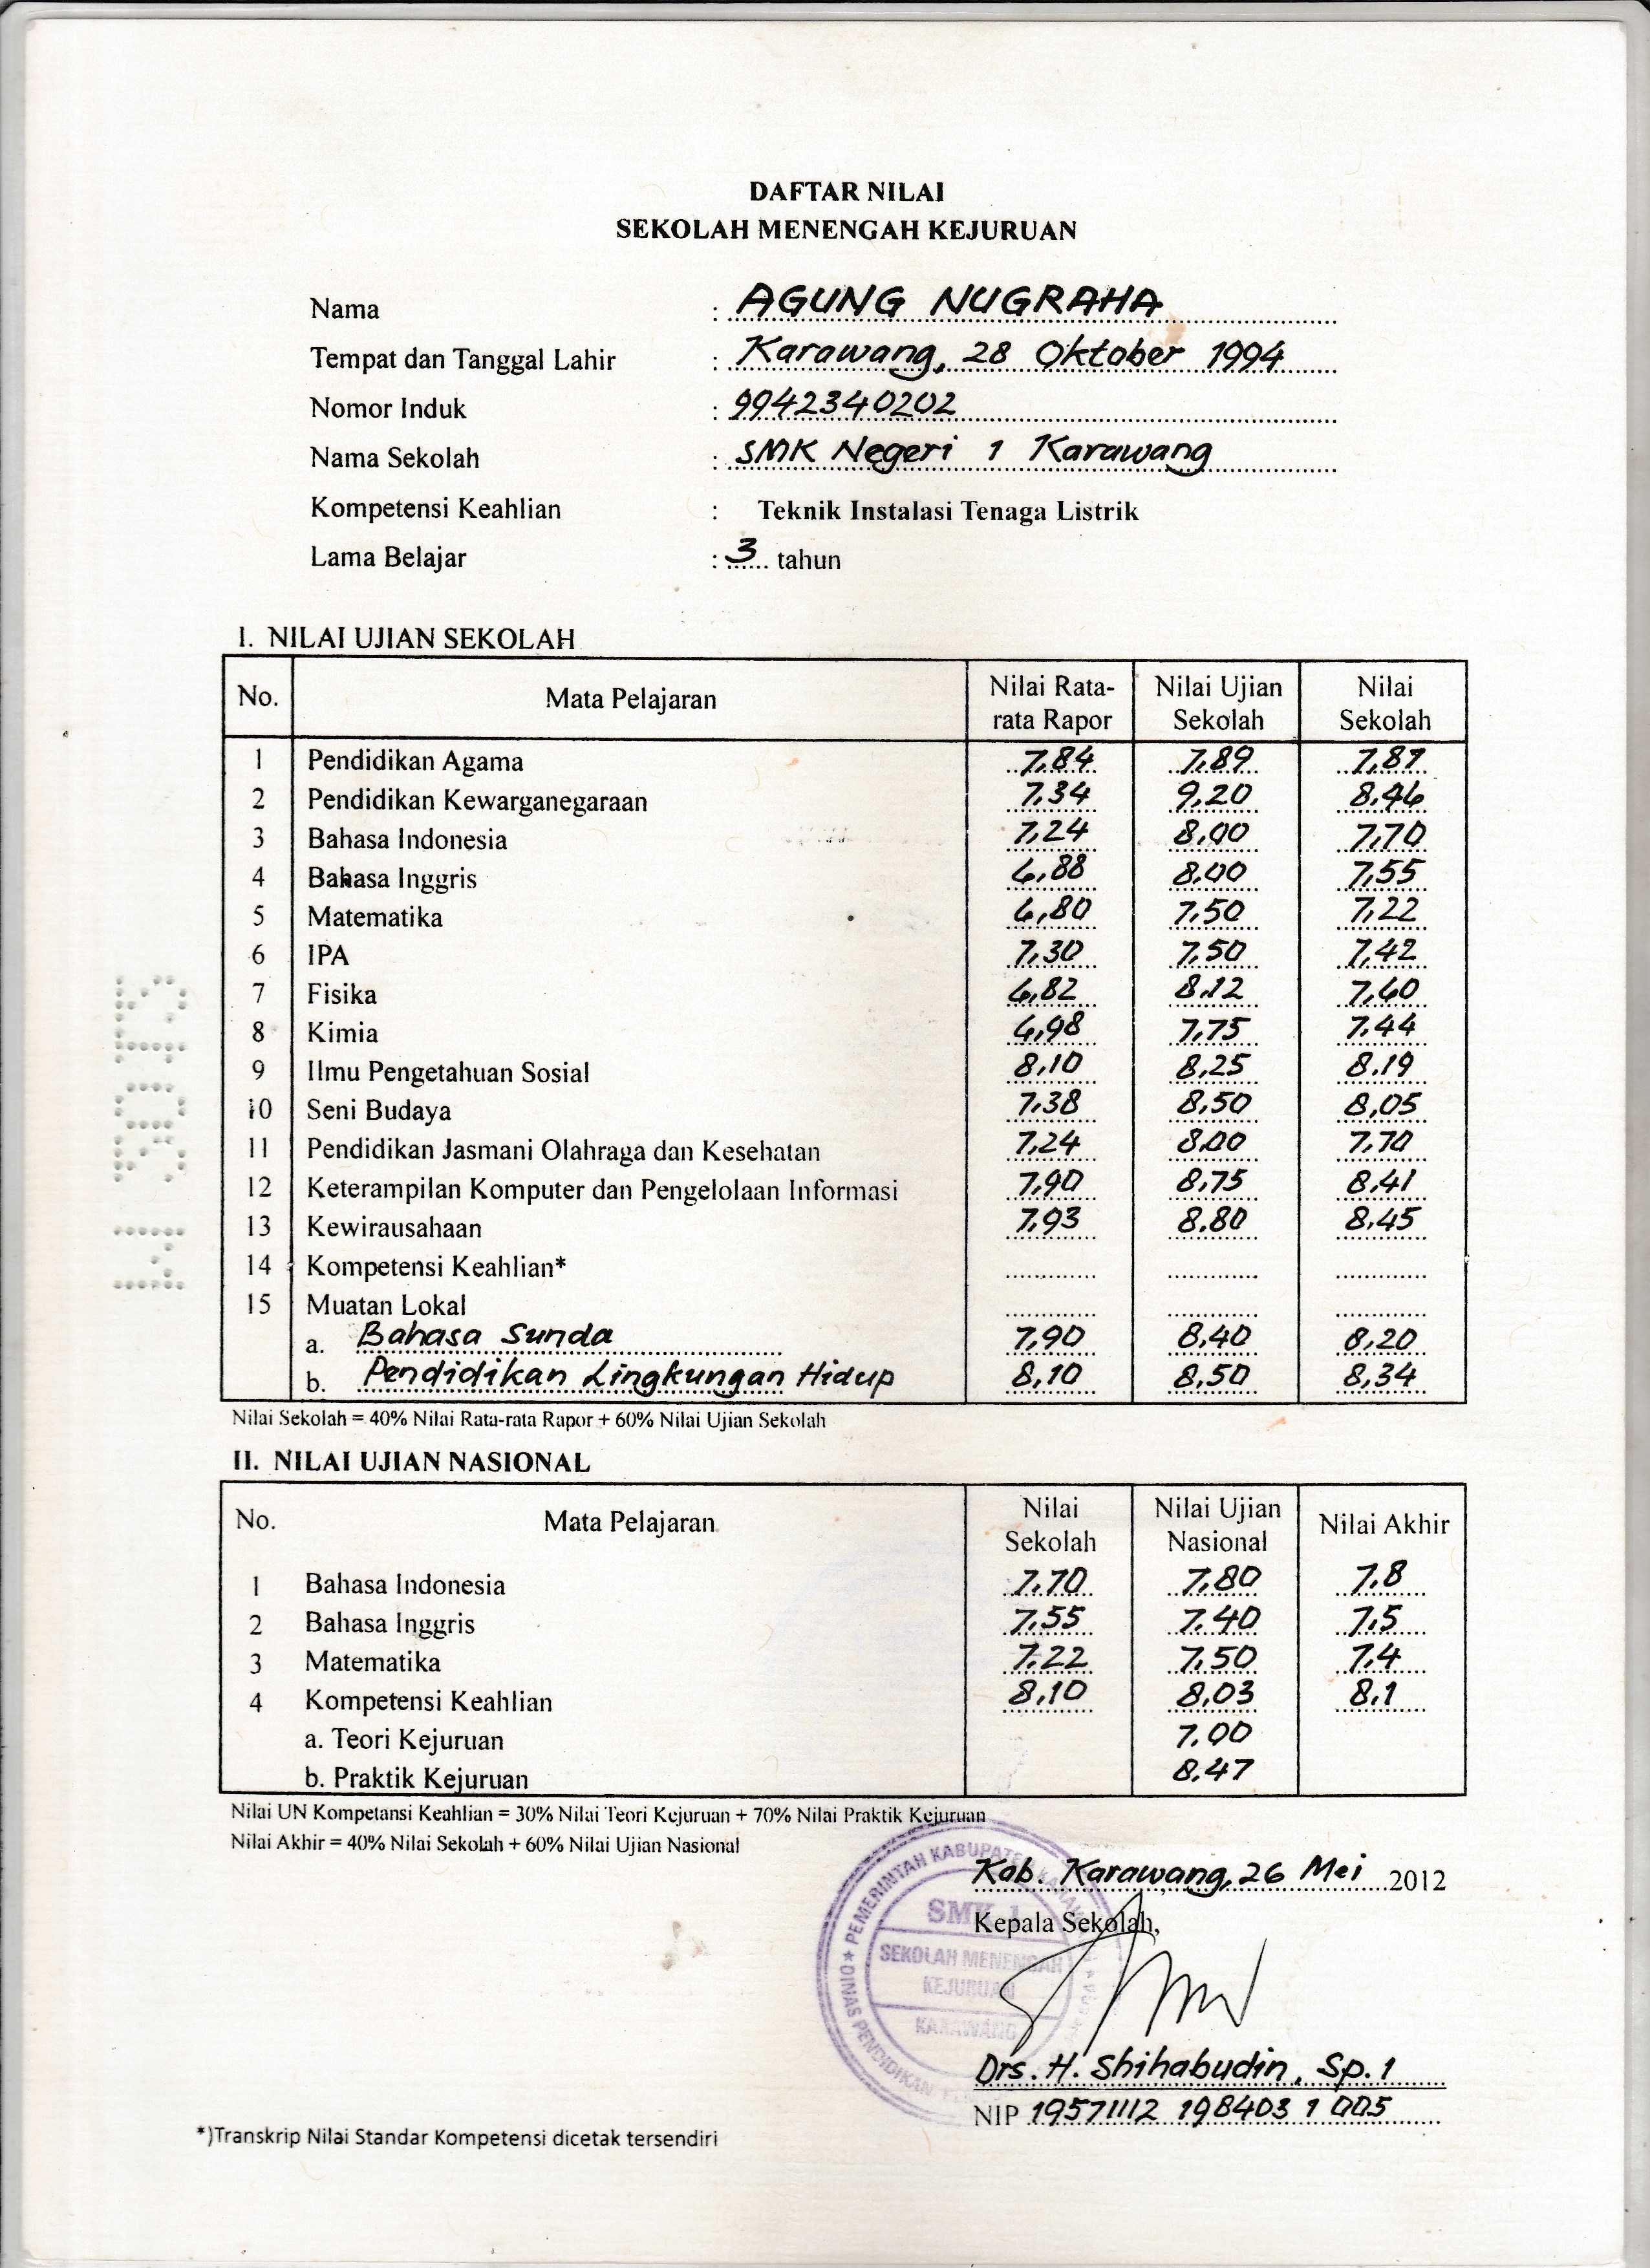 DAFTAR NILAI
SEKOLAH MENENGAH KEJURUAN
Nama : AGUNG NUGRAHA
Tempat dan Tanggal Lahir : Karawang, 28 Oktober 1994
Nomor Induk : 9942340202
Nama Sekolah : SMK Negeri 1 Karawang
Kompetensi Keahlian : Teknik Instalasi Tenaga Listrik
Lama Belajar : 3 tahun
I. NILAI UJIAN SEKOLAH
No. Mata Pelajaran Nilai Rata-rata Rapor Nilai Ujian Sekolah Nilai Sekolah
1 Pendidikan Agama 7,84 7,89 7,87
2 Pendidikan Kewarganegaraan 7,34 9,20 8,46
3 Bahasa Indonesia 7,24 8,00 7,70
4 Bahasa Inggris 6,88 8,00 7,55
5 Matematika 6,80 7,50 7,22
6 IPA 7,30 7,50 7,42
7 Fisika 6,82 8,12 7,60
8 Kimia 6,98 7,75 7,44
9 Ilmu Pengetahuan Sosial 8,10 8,25 8,19
10 Seni Budaya 7,38 8,50 8,05
11 Pendidikan Jasmani Olahraga dan Kesehatan 7,24 8,00 7,70
12 Keterampilan Komputer dan Pengelolaan Informasi 7,90 8,75 8,41
13 Kewirausahaan 7,93 8,80 8,45
14 Kompetensi Keahlian*
15 Muatan Lokal
a. Bahasa Sunda 7,90 8,40 8,20
b. Pendidikan Lingkungan Hidup 8,10 8,50 8,34
Nilai Sekolah = 40% Nilai Rata-rata Rapor + 60% Nilai Ujian Sekolah
II. NILAI UJIAN NASIONAL
No. Mata Pelajaran Nilai Sekolah Nilai Ujian Nasional Nilai Akhir
1 Bahasa Indonesia 7,70 7,80 7,8
2 Bahasa Inggris 7,55 7,40 7,5
3 Matematika 7,22 7,50 7,4
4 Kompetensi Keahlian 8,10 8,03 8,1
a. Teori Kejuruan 7,00
b. Praktik Kejuruan 8,47
Nilai UN Kompetansi Keahlian = 30% Nilai Teori Kejuruan + 70% Nilai Praktik Kejuruan
Nilai Akhir = 40% Nilai Sekolah + 60% Nilai Ujian Nasional
Kab. Karawang, 26 Mei 2012
Kepala Sekolah,
PEMERINTAH KABUPATEN
SMK 1
SEKOLAH MENENGAH
KEJURUAN
KARAWANG
DINAS PENDIDIKAN
Drs. H. Shihabudin, Sp.1
NIP 19571112 198403 1 005
*)Transkrip Nilai Standar Kompetensi dicetak tersendiri